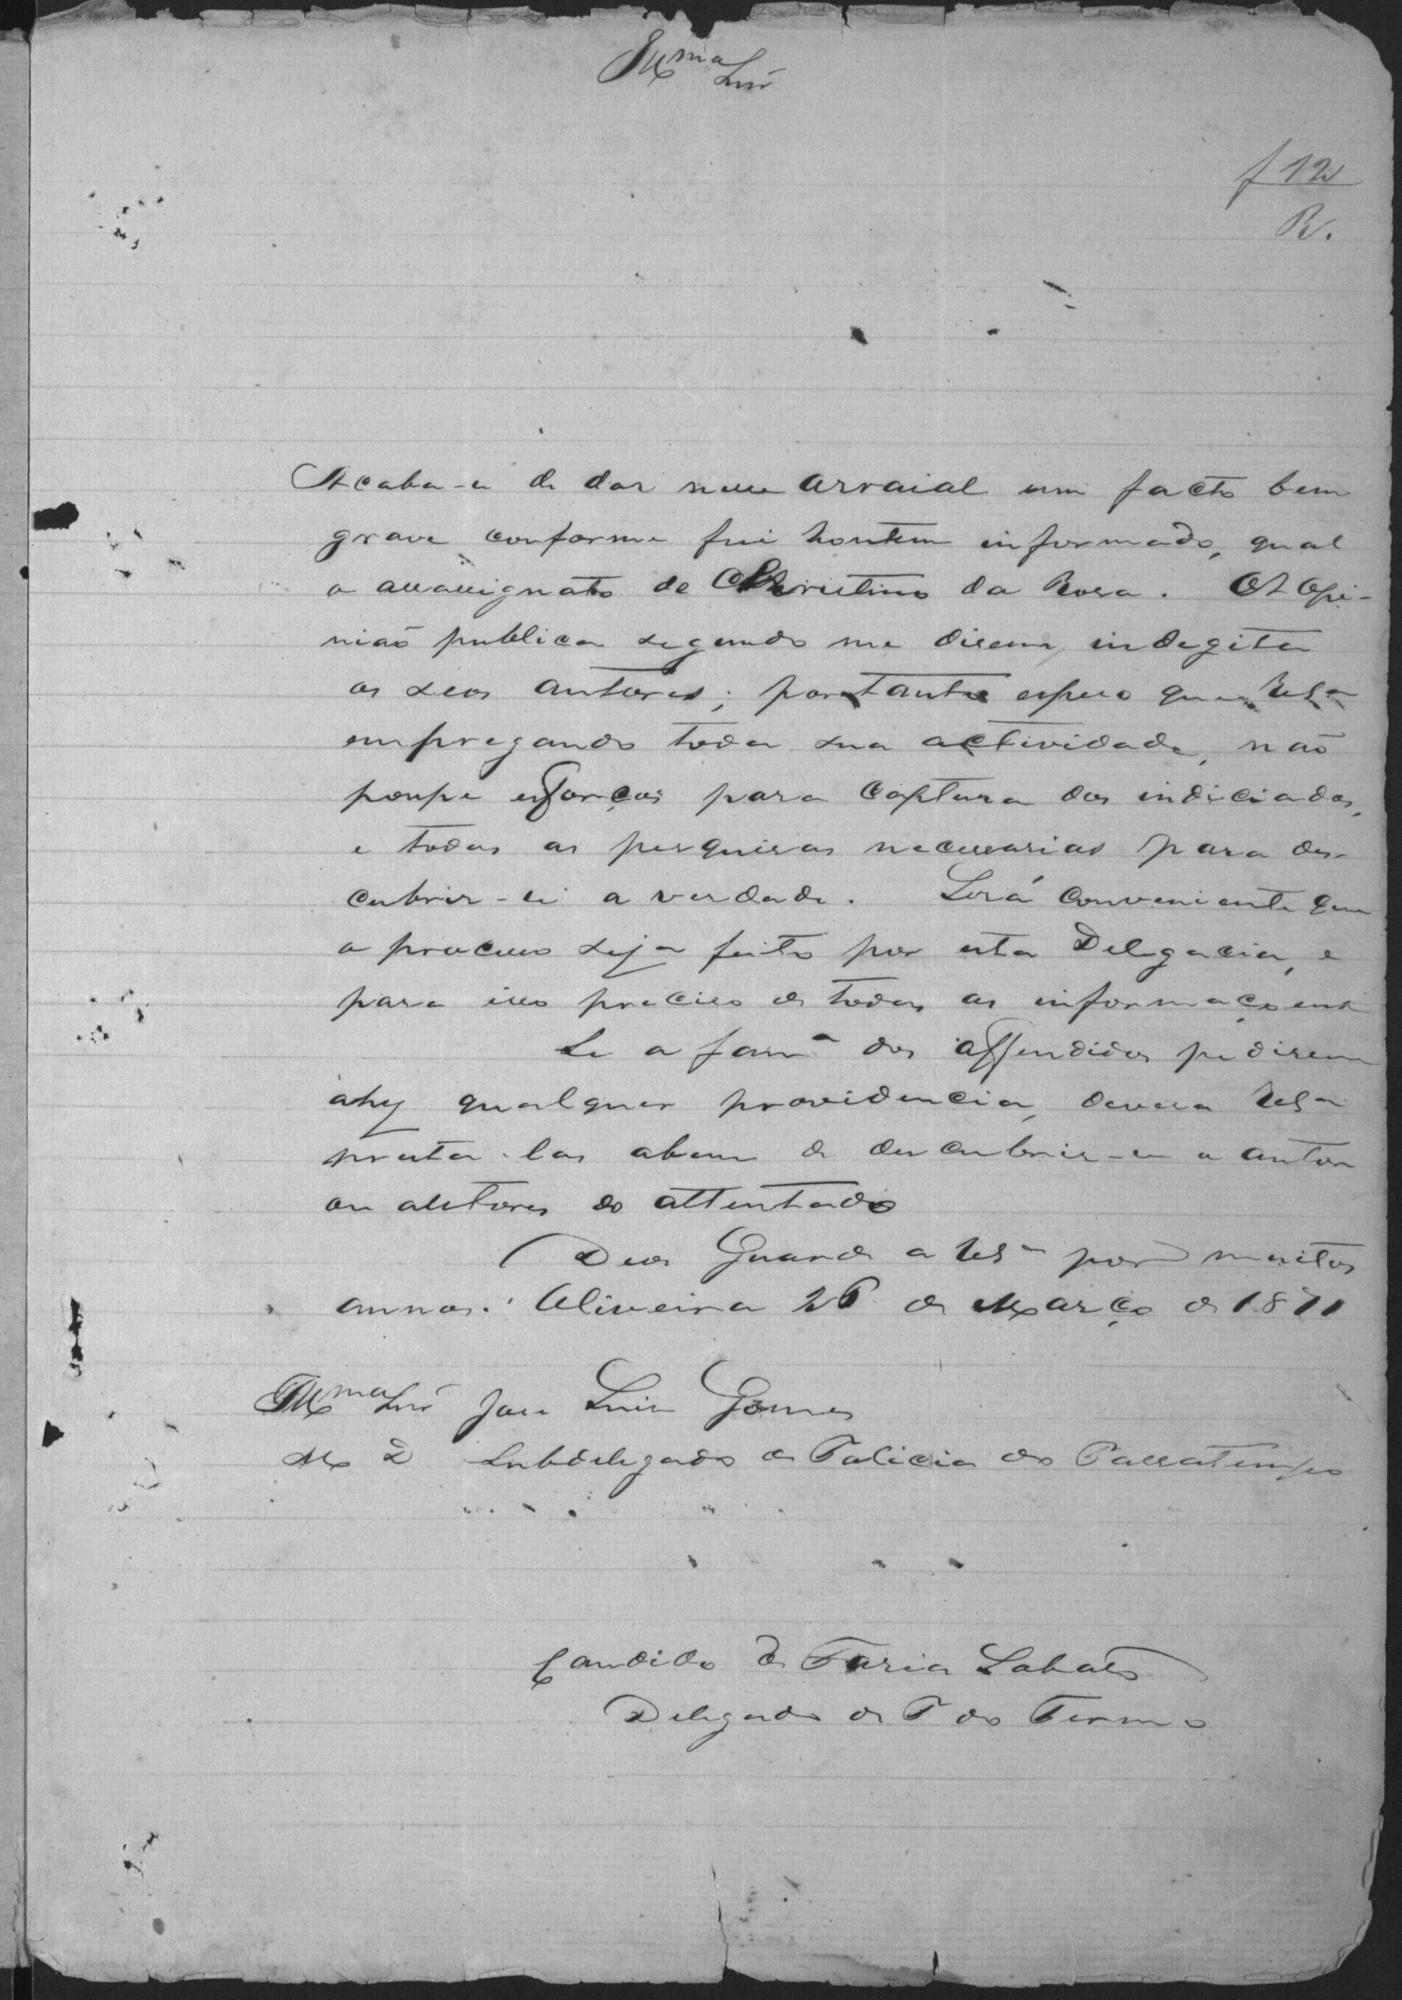 Illmo Snr
f 12
R.
Acaba-se de dar nesse arraial um facto bem
grave conforme fui hontem informado, qual
o assassignato de Christino da Rosa. A Opi-
nião publica segundo me disem, indegita
os seos autores; portanto espero que VSa
empregando toda sua actividade, não
poupe esforços para captura dos indiciados,
e todas as pesquisas necessarias para des-
cubrir-se a verdade. Será conveniente que
o processo seja feito por esta Delegacia, e
para isso preciso de todas as informaçoens
Se a fama dos offendidos pedirem
ahy qualquer providencia, devera VSa
presta-las abem de descubrir-se o autor
ou autores do attentado
Deos Guarde a VSa por muitos
annos. Oliveira 26 de Março de 1871
Illmo Snr Jose Luis Gomes
M D Subdelegado de Policia do Passatempo
Candido de Faria Lobato
Delegado de P do Termo